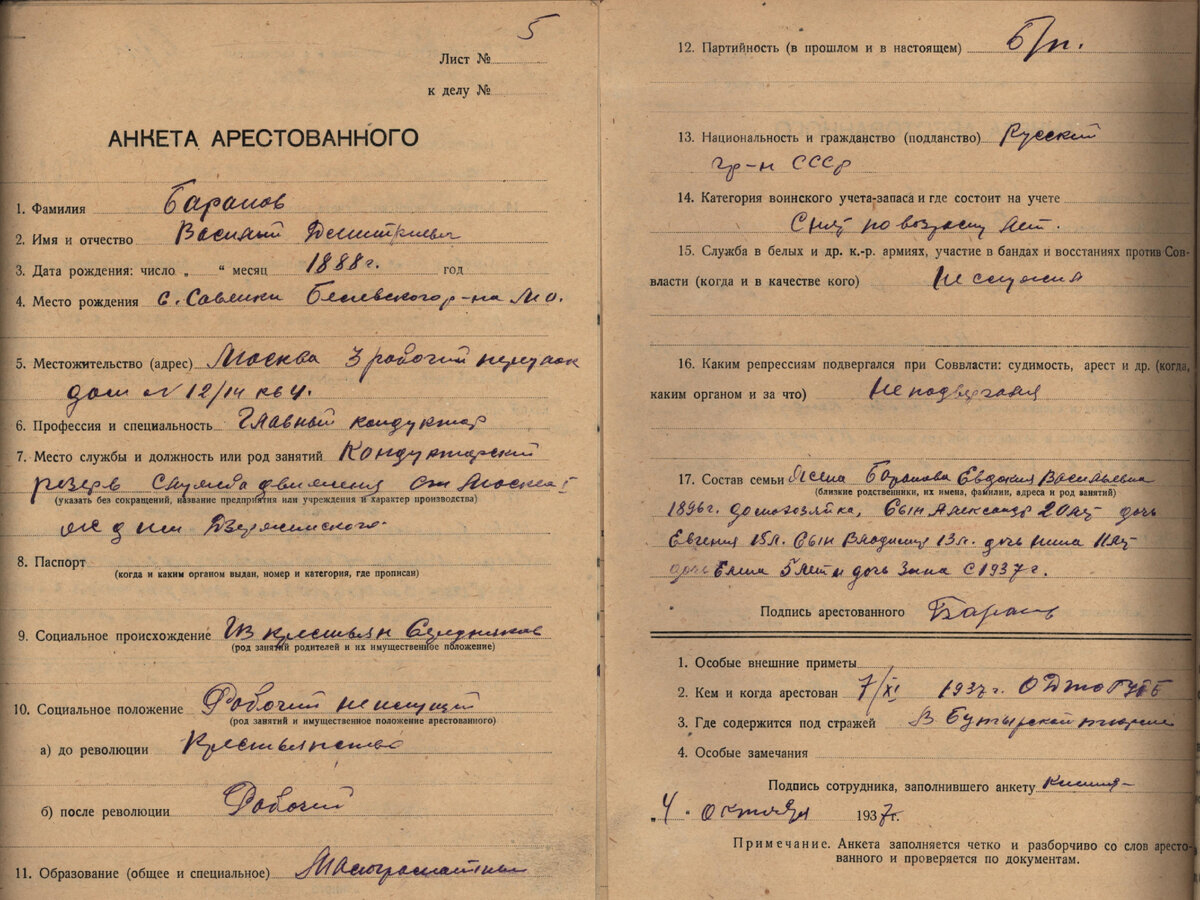 5
Лист №
к делу №
АНКЕТА АРЕСТОВАННОГО
1. Фамилия Баранов
2. Имя и отчество Василий Дмитриевич
3. Дата рождения: число „ “ месяц 1888 г. год
4. Место рождения с. Савинки р-на М.О.
5. Местожительство (адрес) Москва 3 рабочий переулок
дом № 12/14 кв 4.
6. Профессия и специальность Главный кондуктор
7. Место службы и должность или род занятий Кондукторский
резерв Служба движения ст. Москва I
(указать без сокращений, название предприятия или учреждения и характер производства)
ж д им Дзержинского.
8. Паспорт
(когда и каким органом выдан, номер и категория, где прописан)
9. Социальное происхождение Из крестьян Середняков
(род занятий родителей и их имущественное положение)
10. Социальное положение Рабочий неимущий
(род занятий и имущественное положение арестованного)
а) до революции Крестьянство
б) после революции Рабочий
11. Образование (общее и специальное) Малограмотный
12. Партийность (в прошлом и в настоящем) б/п.
13. Национальность и гражданство (подданство) Русский
гр-н СССР
14. Категория воинского учета-запаса и где состоит на учете
Снят по возрасту лет.
15. Служба в белых и др. к.-р. армиях, участие в бандах и восстаниях против Сов-
власти (когда и в качестве кого) Не служил
16. Каким репрессиям подвергался при Соввласти: судимость, арест и др. (когда,
каким органом и за что) Не подвергался
17. Состав семьи Жена Баранова Евдокия Васильевна
(близкие родственники, их имена, фамилии, адреса и род занятий)
1896г. домохозяйка, Сын Александр 20 лет дочь
Евгения 15 л. Сын Владимир 13 л. дочь Нина 11 лет
дочь 5 лет и дочь Зина с 1937 г.
Подпись арестованного Баранов
1. Особые внешние приметы
2. Кем и когда арестован 7/XI 1937 г. ГУГБ
3. Где содержится под стражей В Бутырской тюрьме
4. Особые замечания
Подпись сотрудника, заполнившего анкету
„4. октября 1937г.
Примечание. Анкета заполняется четко и разборчиво со слов аресто-
ванного и проверяется по документам.